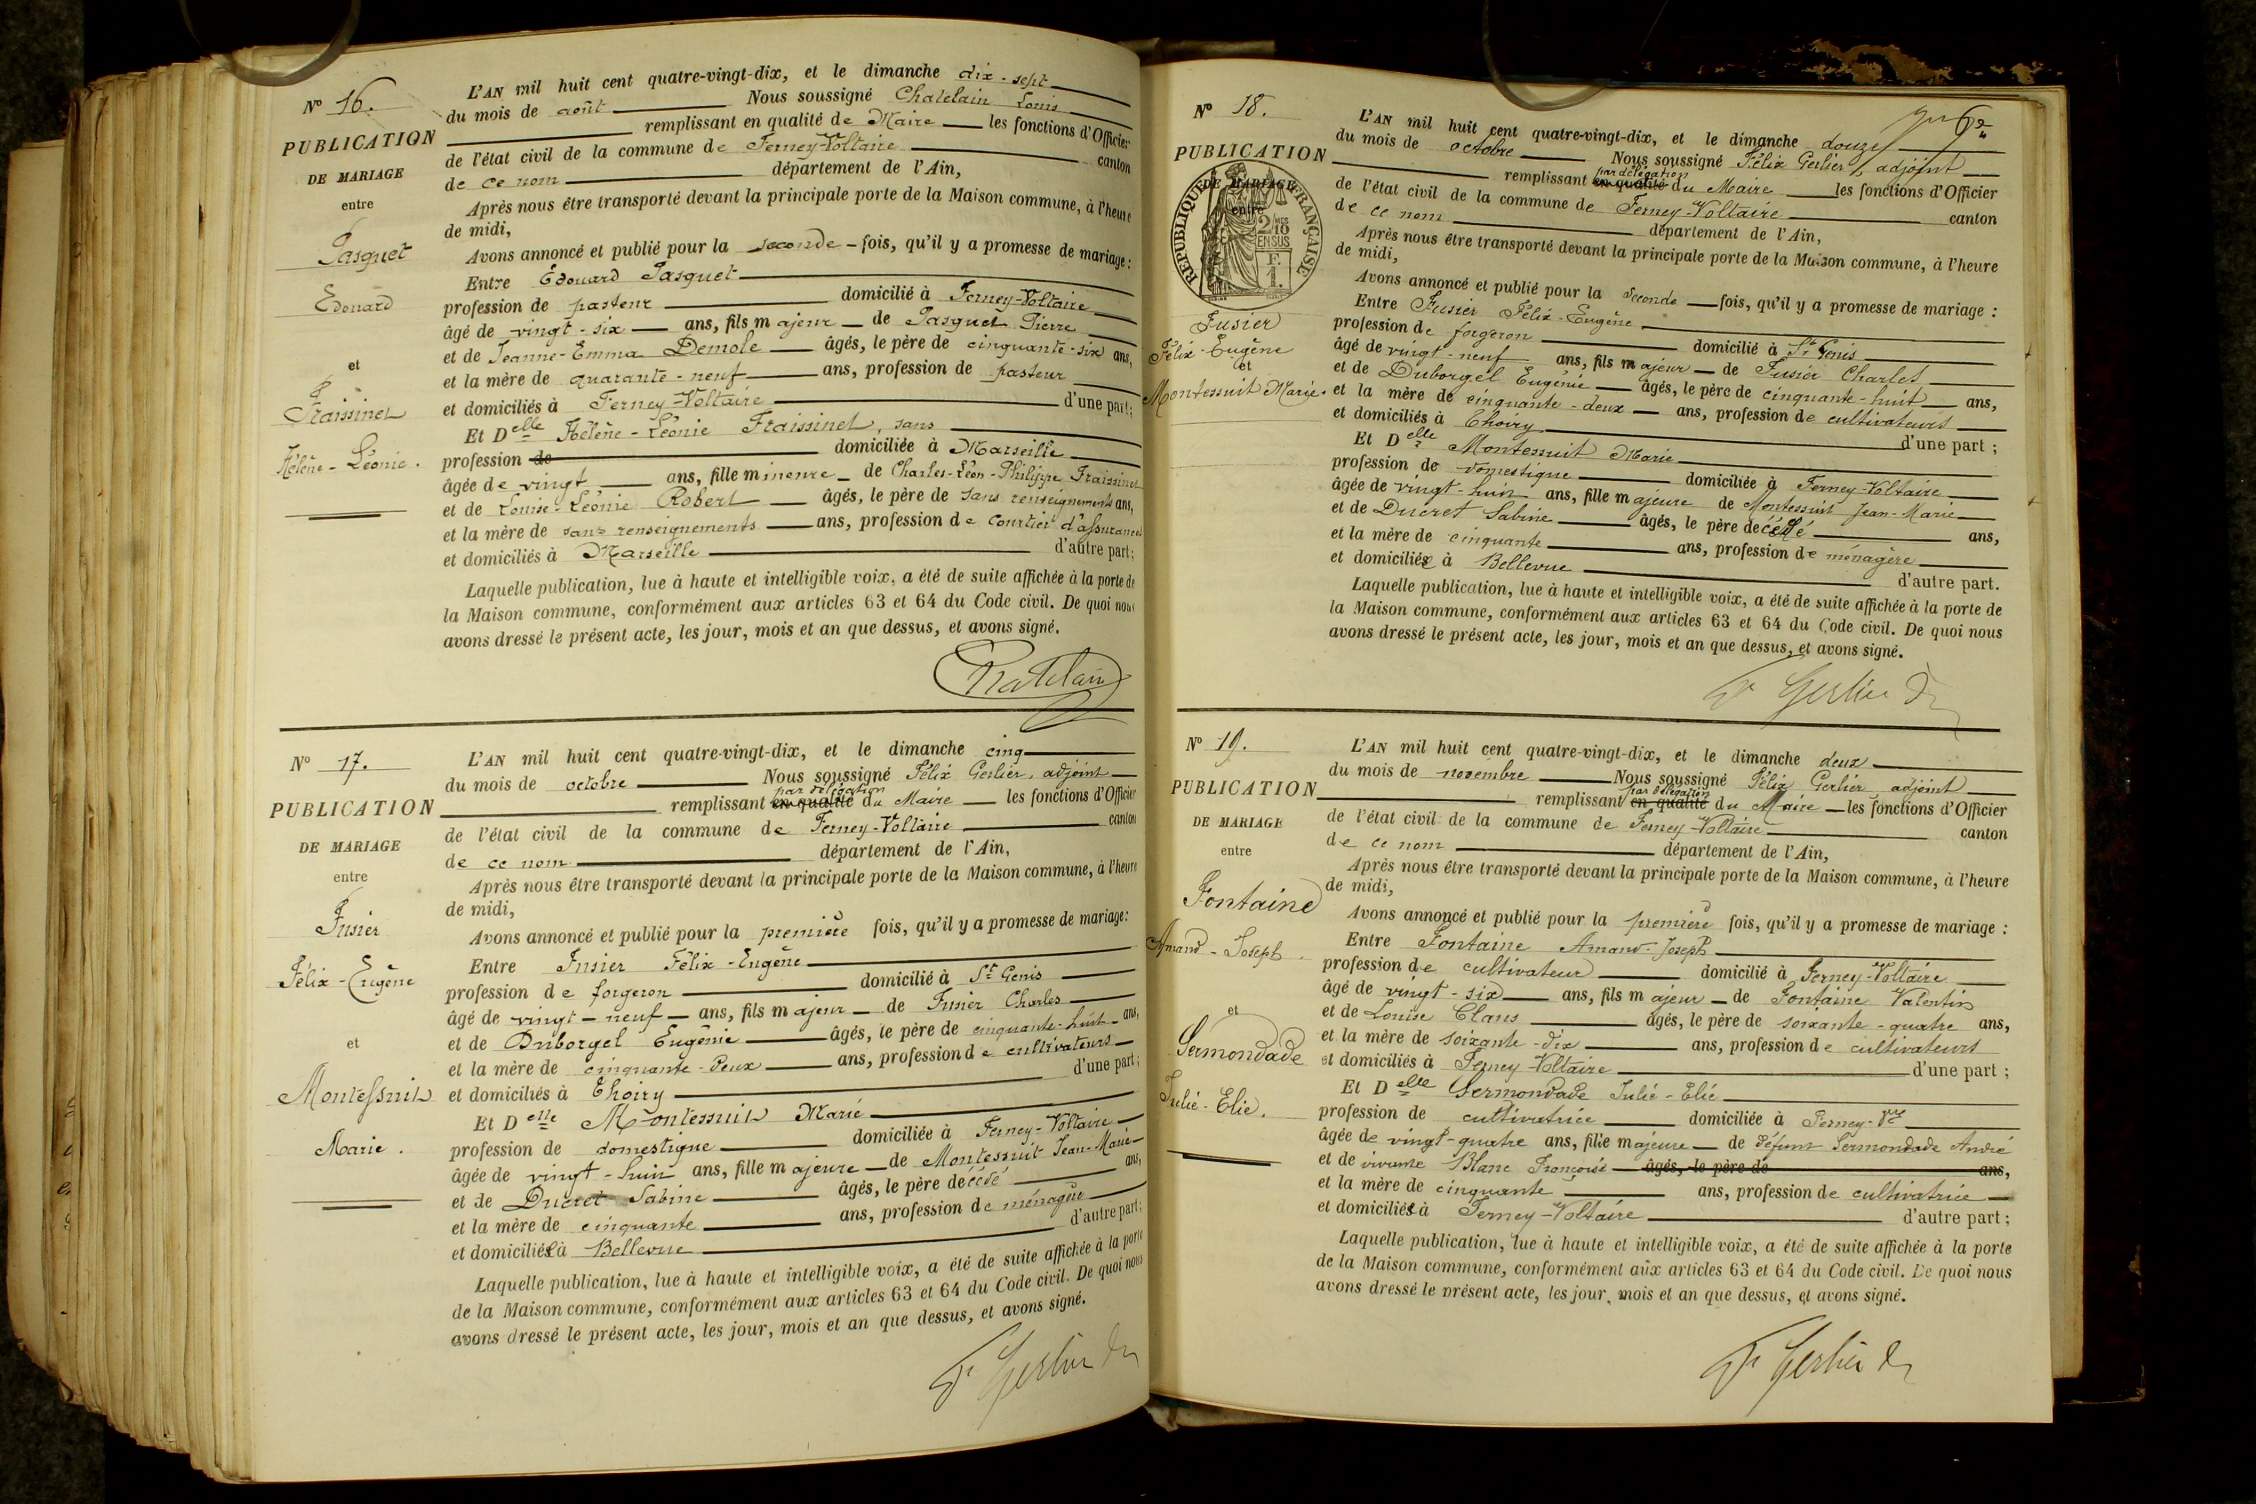 N° 16.
PUBLICATION
DE MARIAGE
entre
Pasquet
Edouard
et
Fraissinet
Hélène-Léonie.
L'AN mil huit cent quatre-vingt-dix, et le dimanche dix-sept
du mois de août Nous soussigné Chatelain Louis
remplissant en qualité de Maire les fonctions d'Officier
de l'état civil de la commune de Ferney-Voltaire canton
de ce nom département de l'Ain,
Après nous être transporté devant la principale porte de la Maison commune, à l'heure
de midi,
Avons annoncé et publié pour la seconde fois, qu'il y a promesse de mariage :
Entre Edouard Pasquet
profession de pasteur domicilié à Ferney-Voltaire
âgé de vingt-six ans, fils majeur de Pasquet Pierre
et de Jeanne-Emma Demole âgés, le père de cinquante-six ans,
et la mère de quarante-neuf ans, profession de pasteur
et domiciliés à Ferney-Voltaire d'une part;
Et Delle Hélène-Léonie Fraissinet, sans
profession de domiciliée à Marseille
âgée de vingt ans, fille mineure de Charles-Léon-Philippe Fraissinet
et de Louise-Léonie Robert âgés, le père de sans renseignements ans,
et la mère de sans renseignements ans, profession de courtier d'assurances
et domiciliés à Marseille d'autre part;
Laquelle publication, lue à haute et intelligible voix, a été de suite affichée à la porte de
la Maison commune, conformément aux articles 63 et 64 du Code civil. De quoi nous
avons dressé le présent acte, les jour, mois et an que dessus, et avons signé.
Chatelain
N° 17.
PUBLICATION
DE MARIAGE
entre
Fusier
Félix-Eugène
et
Montessuit
Marie.
L'AN mil huit cent quatre-vingt-dix, et le dimanche cinq
du mois de octobre Nous soussigné Félix Gerlier, adjoint
par délégation
remplissant en qualité du Maire les fonctions d'Officier
de l'état civil de la commune de Ferney-Voltaire canton
de ce nom département de l'Ain,
Après nous être transporté devant la principale porte de la Maison commune, à l'heure
de midi,
Avons annoncé et publié pour la première fois, qu'il y a promesse de mariage:
Entre Fusier Félix-Eugène
profession de forgeron domicilié à St Genis
âgé de vingt-neuf ans, fils majeur de Fusier Charles
et de Duborgel Eugénie âgés, le père de cinquante-huit ans,
et la mère de cinquante-deux ans, profession de cultivateurs
et domiciliés à Thoiry d'une part;
Et Delle Montessuit Marie
profession de domestique domiciliée à Ferney-Voltaire
âgée de vingt-huit ans, fille majeure de Montessuit Jean-Marie
et de Ducret Sabine âgés, le père décédé ans,
et la mère de cinquante ans, profession de ménagère
et domiciliée à Bellevue d'autre part;
Laquelle publication, lue à haute et intelligible voix, a été de suite affichée à la porte
de la Maison commune, conformément aux articles 63 et 64 du Code civil. De quoi nous
avons dressé le présent acte, les jour, mois et an que dessus, et avons signé.
F Gerlier
N° 18.
PUBLICATION
DE MARIAGE
entre
REPUBLIQUE FRANÇAISE
2/10
EN SUS
F.
1.
Fusier
Félix-Eugène
et
Montessuit Marie.
L'AN mil huit cent quatre-vingt-dix, et le dimanche douze
du mois de octobre Nous soussigné Félix Gerlier, adjoint
par délégation
remplissant en qualité du Maire les fonctions d'Officier
de l'état civil de la commune de Ferney-Voltaire canton
de ce nom département de l'Ain,
Après nous être transporté devant la principale porte de la Maison commune, à l'heure
de midi,
Avons annoncé et publié pour la seconde fois, qu'il y a promesse de mariage :
Entre Fusier Félix-Eugène
profession de forgeron domicilié à St Genis
âgé de vingt-neuf ans, fils majeur de Fusier Charles
et de Duborgel Eugénie âgés, le père de cinquante-huit ans,
et la mère de cinquante-deux ans, profession de cultivateurs
et domiciliés à Thoiry d'une part ;
Et Delle Montessuit Marie
profession de domestique domiciliée à Ferney-Voltaire
âgée de vingt-huit ans, fille majeure de Montessuit Jean-Marie
et de Ducret Sabine âgés, le père décédé ans,
et la mère de cinquante ans, profession de ménagère
et domiciliée à Bellevue d'autre part.
Laquelle publication, lue à haute et intelligible voix, a été de suite affichée à la porte de
la Maison commune, conformément aux articles 63 et 64 du Code civil. De quoi nous
avons dressé le présent acte, les jour, mois et an que dessus, et avons signé.
F Gerlier
N° 19.
PUBLICATION
DE MARIAGE
entre
Fontaine
Amand-Joseph.
et
Sermondade
Julie-Elie.
L'AN mil huit cent quatre-vingt-dix, et le dimanche deux
du mois de novembre Nous soussigné Félix Gerlier adjoint
par délégation
remplissant en qualité du Maire les fonctions d'Officier
de l'état civil de la commune de Ferney-Voltaire canton
de ce nom département de l'Ain,
Après nous être transporté devant la principale porte de la Maison commune, à l'heure
de midi,
Avons annoncé et publié pour la première fois, qu'il y a promesse de mariage :
Entre Fontaine Amand-Joseph
profession de cultivateur domicilié à Ferney-Voltaire
âgé de vingt-six ans, fils majeur de Fontaine Valentin
et de Louise Claus âgés, le père de soixante-quatre ans,
et la mère de soixante-dix ans, profession de cultivateurs
et domiciliés à Ferney-Voltaire d'une part ;
Et Delle Sermondade Julie-Elie
profession de cultivatrice domiciliée à Ferney-Vre
âgée de vingt-quatre ans, fille majeure de défunt Sermondade André
et de vivante Blanc Françoise âgés, le père de ans,
et la mère de cinquante ans, profession de cultivatrice
et domiciliée à Ferney-Voltaire d'autre part ;
Laquelle publication, lue à haute et intelligible voix, a été de suite affichée à la porte
de la Maison commune, conformément aux articles 63 et 64 du Code civil. De quoi nous
avons dressé le présent acte, les jour, mois et an que dessus, et avons signé.
F Gerlier